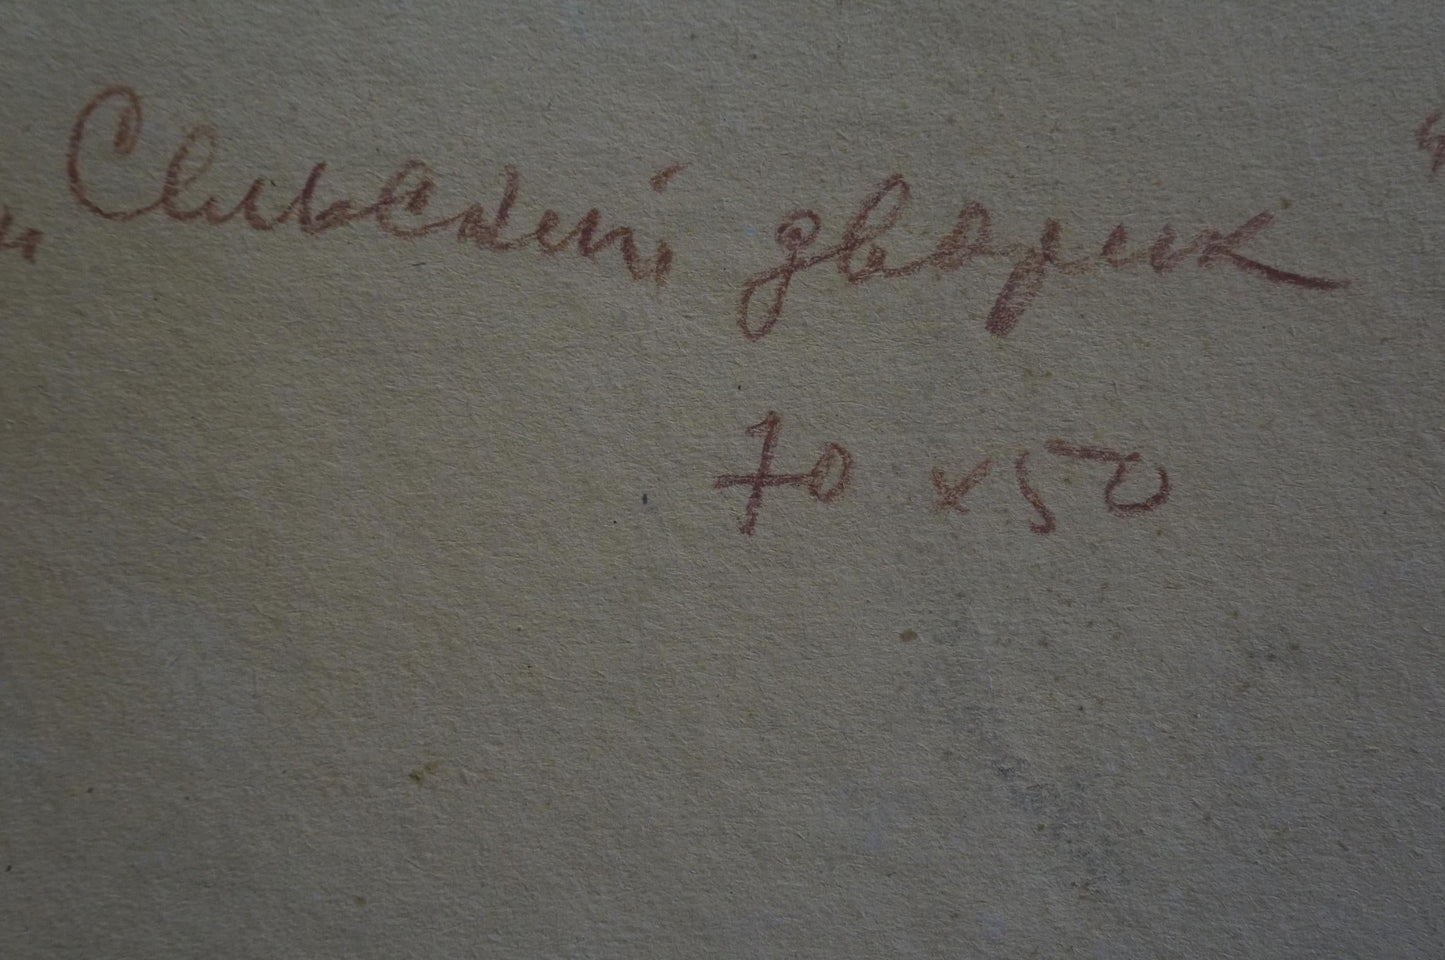 „Сельский дворик“
70 х 50